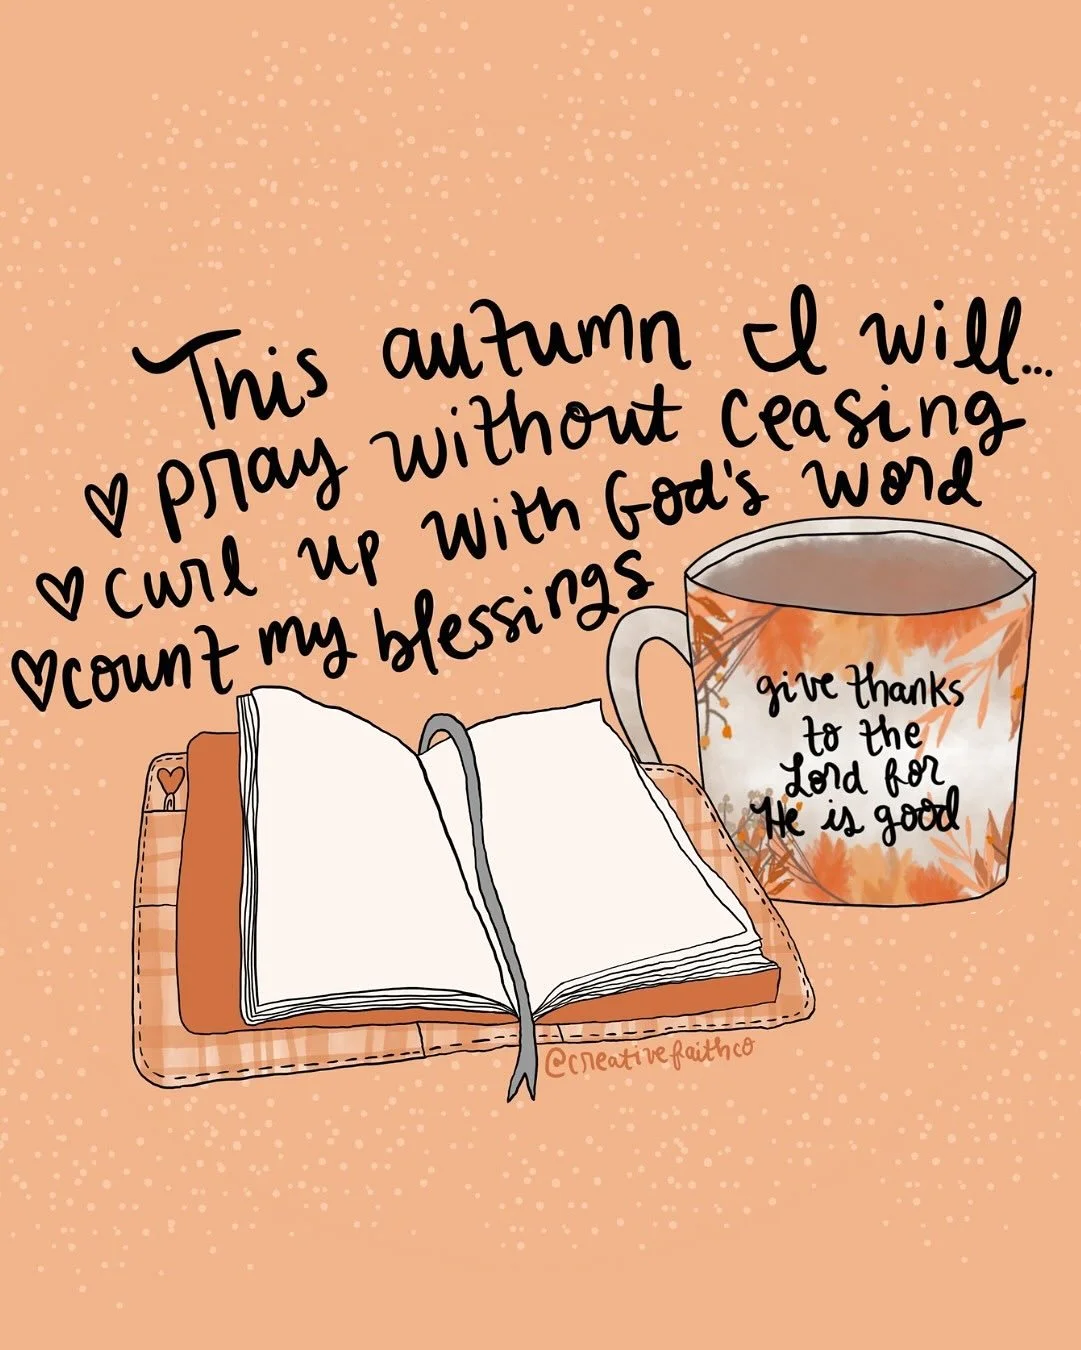 This autumn I will...
♡ pray without ceasing
♡ curl up with God's word
♡ count my blessings
give thanks
to the
Lord for
He is good
@creativefaithco